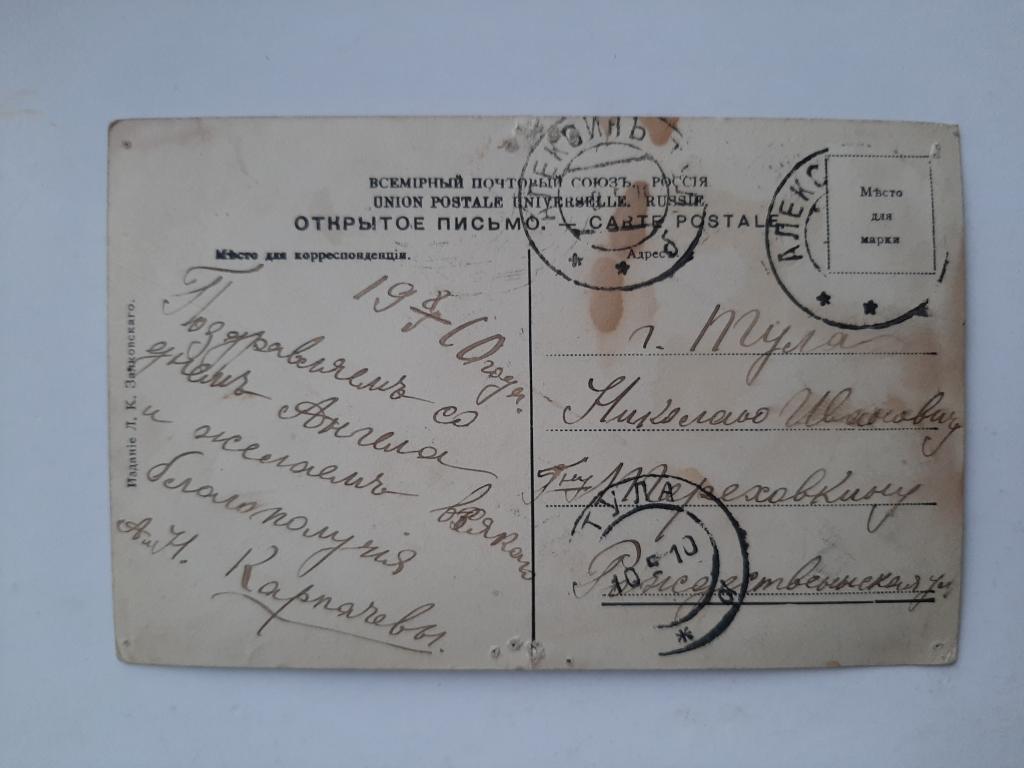 ВСЕМІРНЫЙ ПОЧТОВЫЙ СОЮЗЪ. РОССІЯ
UNION POSTALE UNIVERSELLE. RUSSIE.
ОТКРЫТОЕ ПИСЬМО. — CARTE POSTALE
Мѣсто для корреспонденціи.
Адресъ.
Мѣсто
для
марки
АЛЕКСИНЪ
АЛЕКС
Изданіе Л. К. Зайковскаго.
19 8/V 10 года.
Поздравляемъ съ
днемъ Ангела
и желаемъ всякаго
благополучія
А и Н. Карпачевы.
г. Тула
Николаю Ивановичу
Г-ну Тереховкину
Рождественская ул
ТУЛА
10 5 10